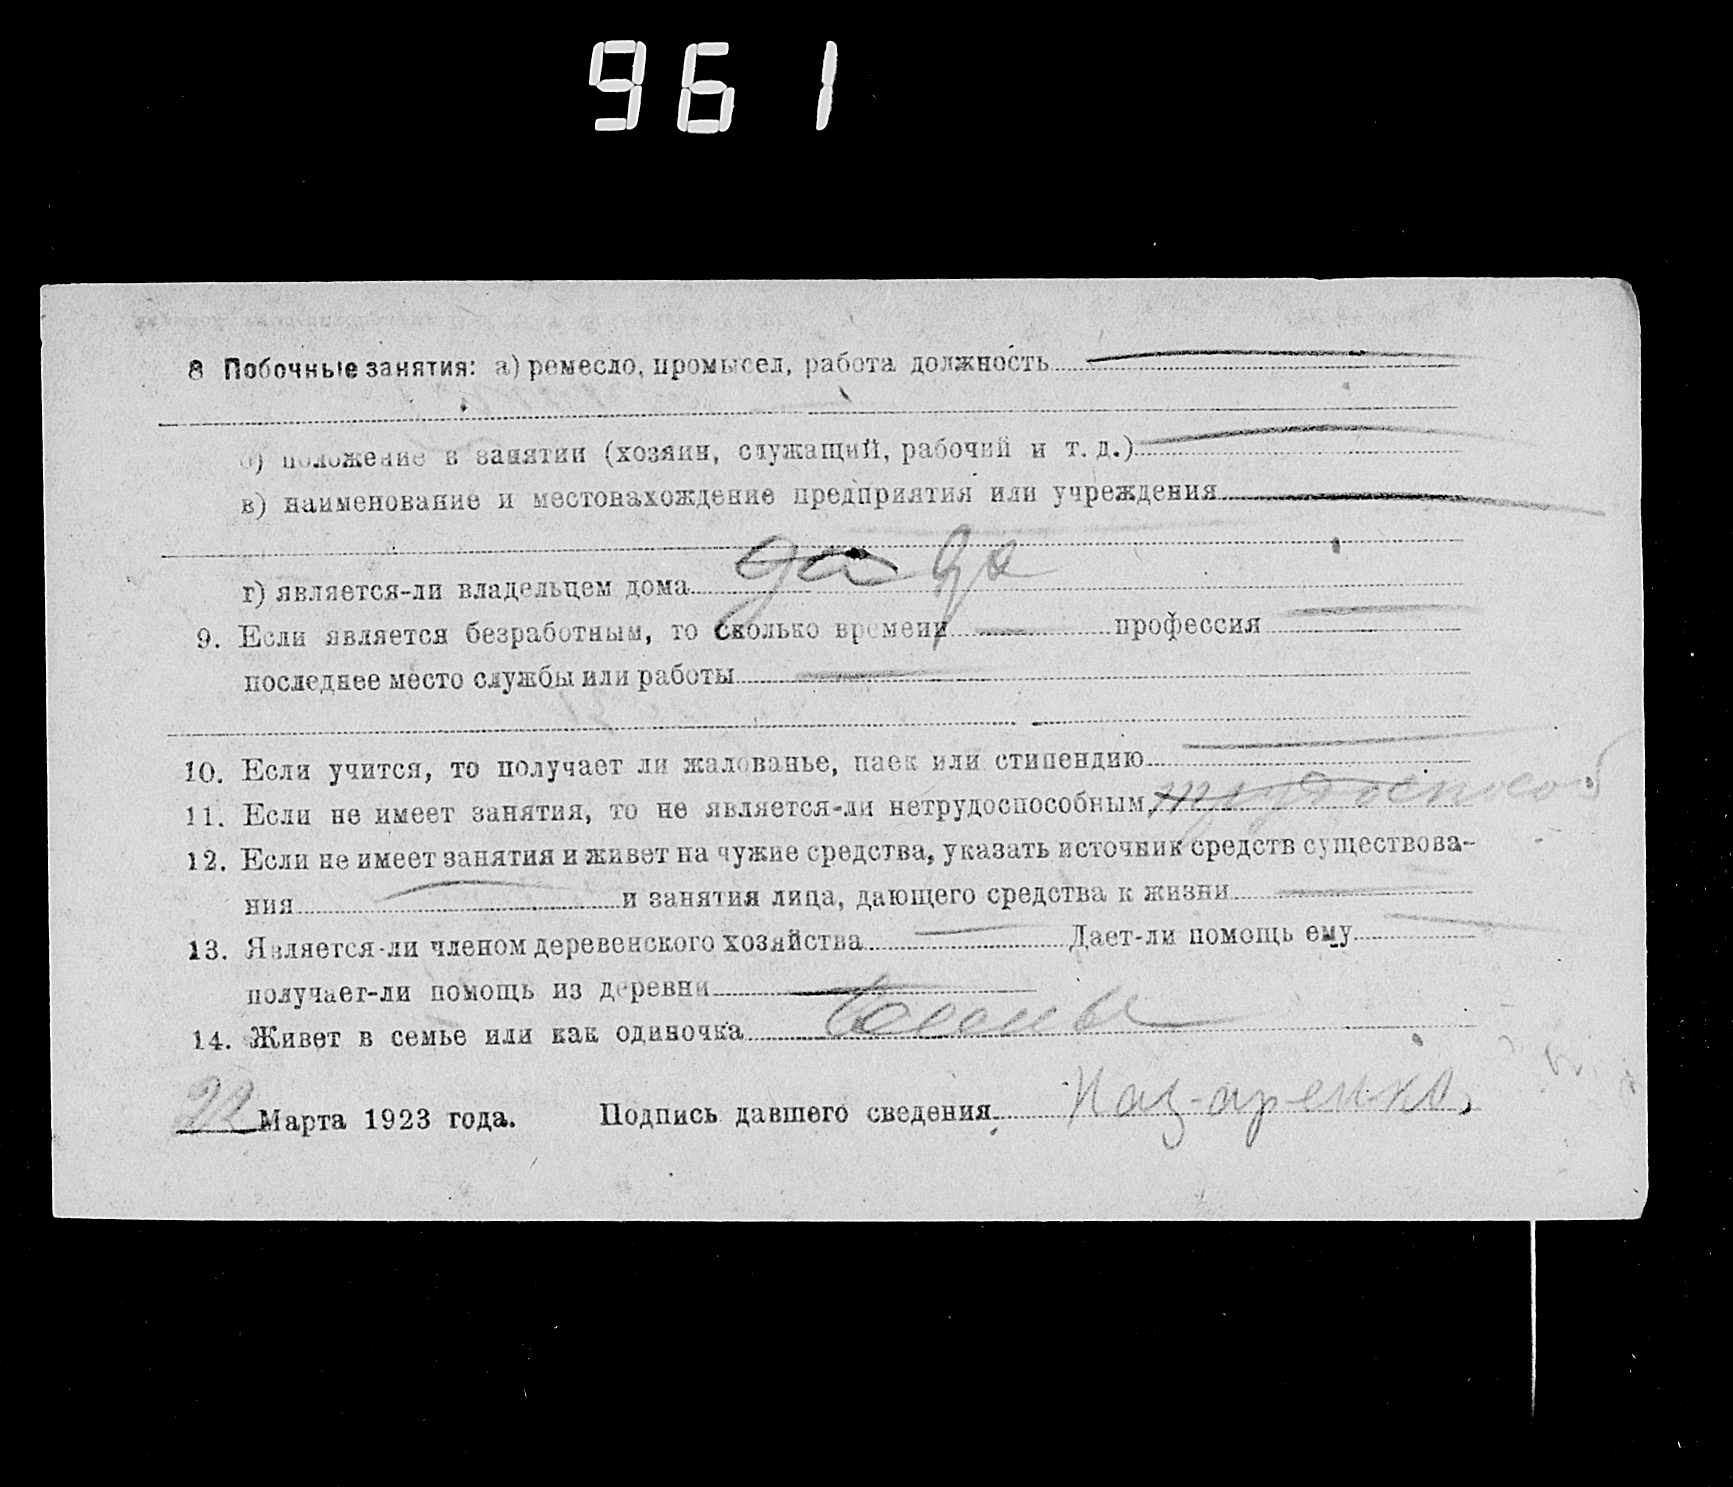 961
8 Побочные занятия: а) ремесло, промысел, работа должность
б) положение в занятии (хозяин, служащий, рабочий и т. д.)
в) наименование и местонахождение предприятия или учреждения
г) является-ли владельцем дома да да
9. Если является безработным, то сколько времени профессия
последнее место службы или работы
10. Если учится, то получает ли жалованье, паек или стипендию
11. Если не имеет занятия, то не является-ли нетрудоспособным, трудоспособ
12. Если не имеет занятия и живет на чужие средства, указать источник средств существова-
ния и занятия лица, дающего средства к жизни
13. Является-ли членом деревенского хозяйства Дает-ли помощь ему
получает-ли помощь из деревни
14. Живет в семье или как одиночка
22 Марта 1923 года. Подпись давшего сведения Назаренко